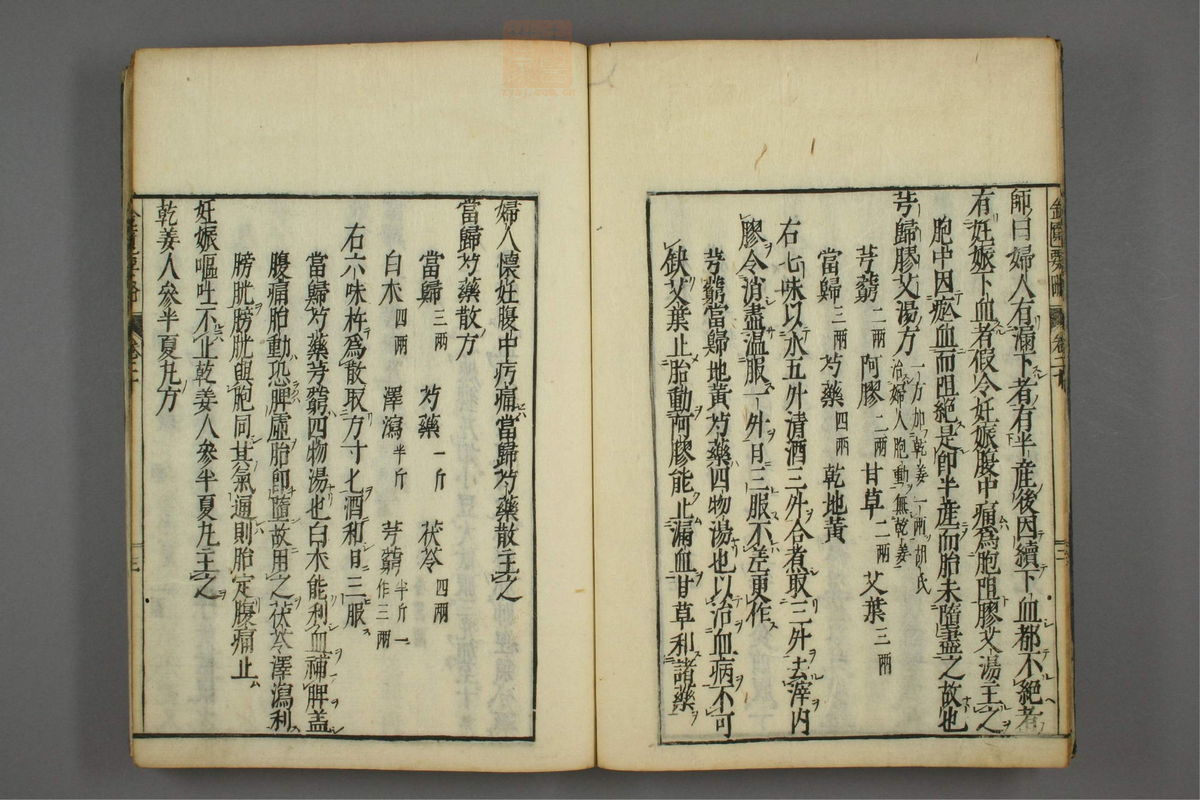 師曰婦人有漏下者有半産後因續下血都不絶者
有妊娠下血者假令妊娠腹中痛為胞阻膠艾湯主之
胞中因瘀血而阻絶是卽半産而胎未墮盡之故也
芎歸膠艾湯方 一方加乾姜一兩胡氏
治婦人胞動無乾姜
芎藭二兩 阿膠二兩 甘草二兩 艾葉三兩
當歸三兩 芍藥四兩 乾地黄
右七味以水五升清酒三升合煮取三升去滓内
膠令消盡温服一升日三服不差更作
芎藭當歸地黄芍藥四物湯也以治血病不可
缺艾葉止胎動阿膠能止漏血甘草和諸藥
婦人懷妊腹中㽲痛當歸芍藥散主之
當歸芍藥散方
當歸三兩 芍藥一斤 茯苓四兩
白朮四兩 澤瀉半斤 芎藭半斤一
作三兩
右六味杵爲散取方寸匕酒和日三服
當歸芍藥芎藭四物湯也白朮能利血補脾盖
腹痛胎動恐脾虚胎卽墮故用之茯苓澤瀉利
膀胱膀胱與胞同其氣通則胎定腹痛止
妊娠嘔吐不止乾姜人參半夏丸主之
乾姜人參半夏丸方